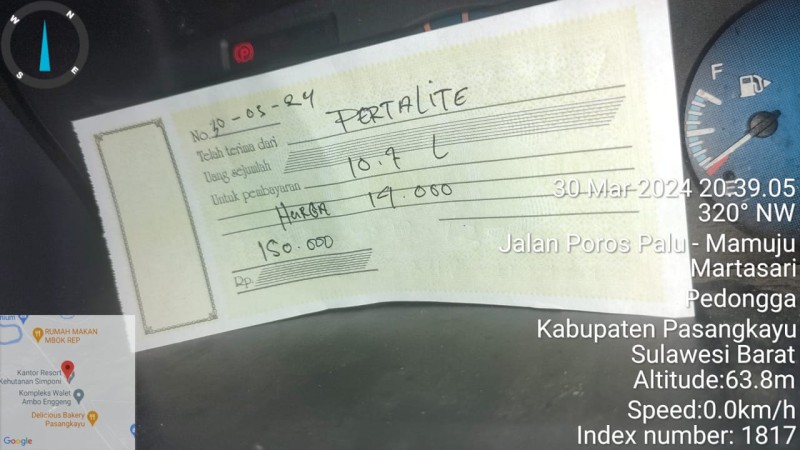 No. 30-03-24
PERTALITE
Telah terima dari
Uang sejumlah
10.7 L
Untuk pembayaran
HARGA 14.000
150.000
Rp.
F
N
E
S
W
30 Mar 2024 20.39.05
320° NW
Jalan Poros Palu - Mamuju
Martasari
Pedongga
Kabupaten Pasangkayu
Sulawesi Barat
Altitude:63.8m
Speed:0.0km/h
Index number: 1817
RUMAH MAKAN
MBOK REP
Kantor Resort
Kehutanan Simponi
Kompleks Walet
Ambo Enggeng
Delicious Bakery
Pasangkayu
Google